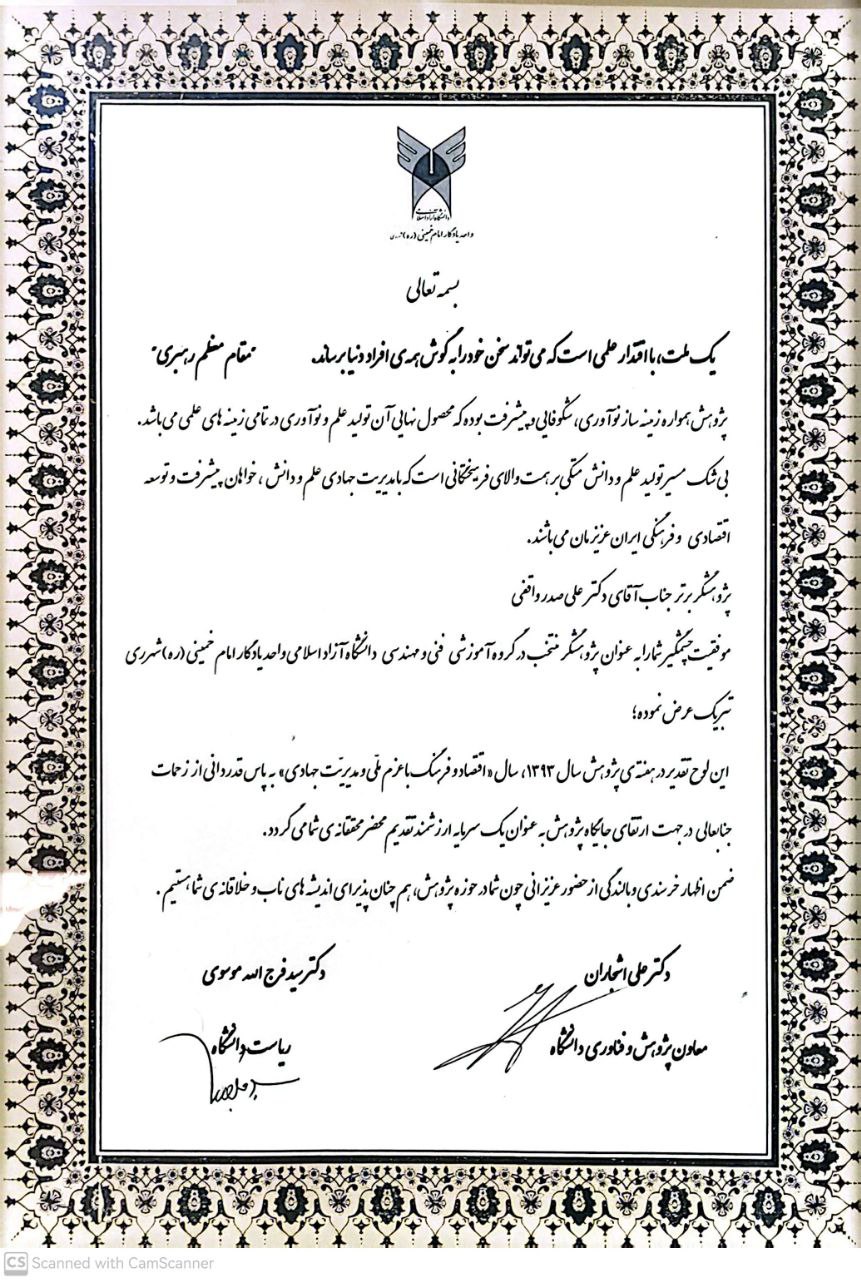 دانشگاه آزاد اسلامی
واحد یادگار امام خمینی (ره)
بسمه تعالی
یک ملت، با اقتدار علمی است که می تواند سخن خود را به گوش همه ی افراد دنیا برساند. "مقام معظم رهبری"
پژوهش همواره زمینه ساز نوآوری، شکوفایی و پیشرفت بوده که محصول نهایی آن تولید علم و نوآوری در تمامی زمینه های علمی می باشد.
بی شک مسیر تولید علم و دانش متکی بر همت والای فرهیختگانی است که با مدیریت جهادی علم و دانش ، خواهان پیشرفت و توسعه
اقتصادی و فرهنگی ایران عزیزمان می باشند.
پژوهشگر برتر جناب آقای دکتر علی صدر واقفی
موفقیت چشمگیر شما را به عنوان پژوهشگر منتخب در گروه آموزشی فنی و مهندسی دانشگاه آزاد اسلامی واحد یادگار امام خمینی (ره) شهرری
تبریک عرض نموده؛
این لوح تقدیر در هفته ی پژوهش سال ۱۳۹۳، سال «اقتصاد و فرهنگ با عزم ملّی و مدیریت جهادی» به پاس قدردانی از زحمات
جنابعالی در جهت ارتقای جایگاه پژوهش به عنوان یک سرمایه ارزشمند تقدیم محضر محققانه ی شما می گردد.
ضمن اظهار خرسندی و بالندگی از حضور عزیزانی چون شما در حوزه پژوهش، هم چنان پذیرای اندیشه های ناب و خلاقانه ی شما هستیم .
دکتر علی اشجاران دکتر سید فرج الله موسوی
معاون پژوهش و فناوری دانشگاه ریاست دانشگاه
CS Scanned with CamScanner